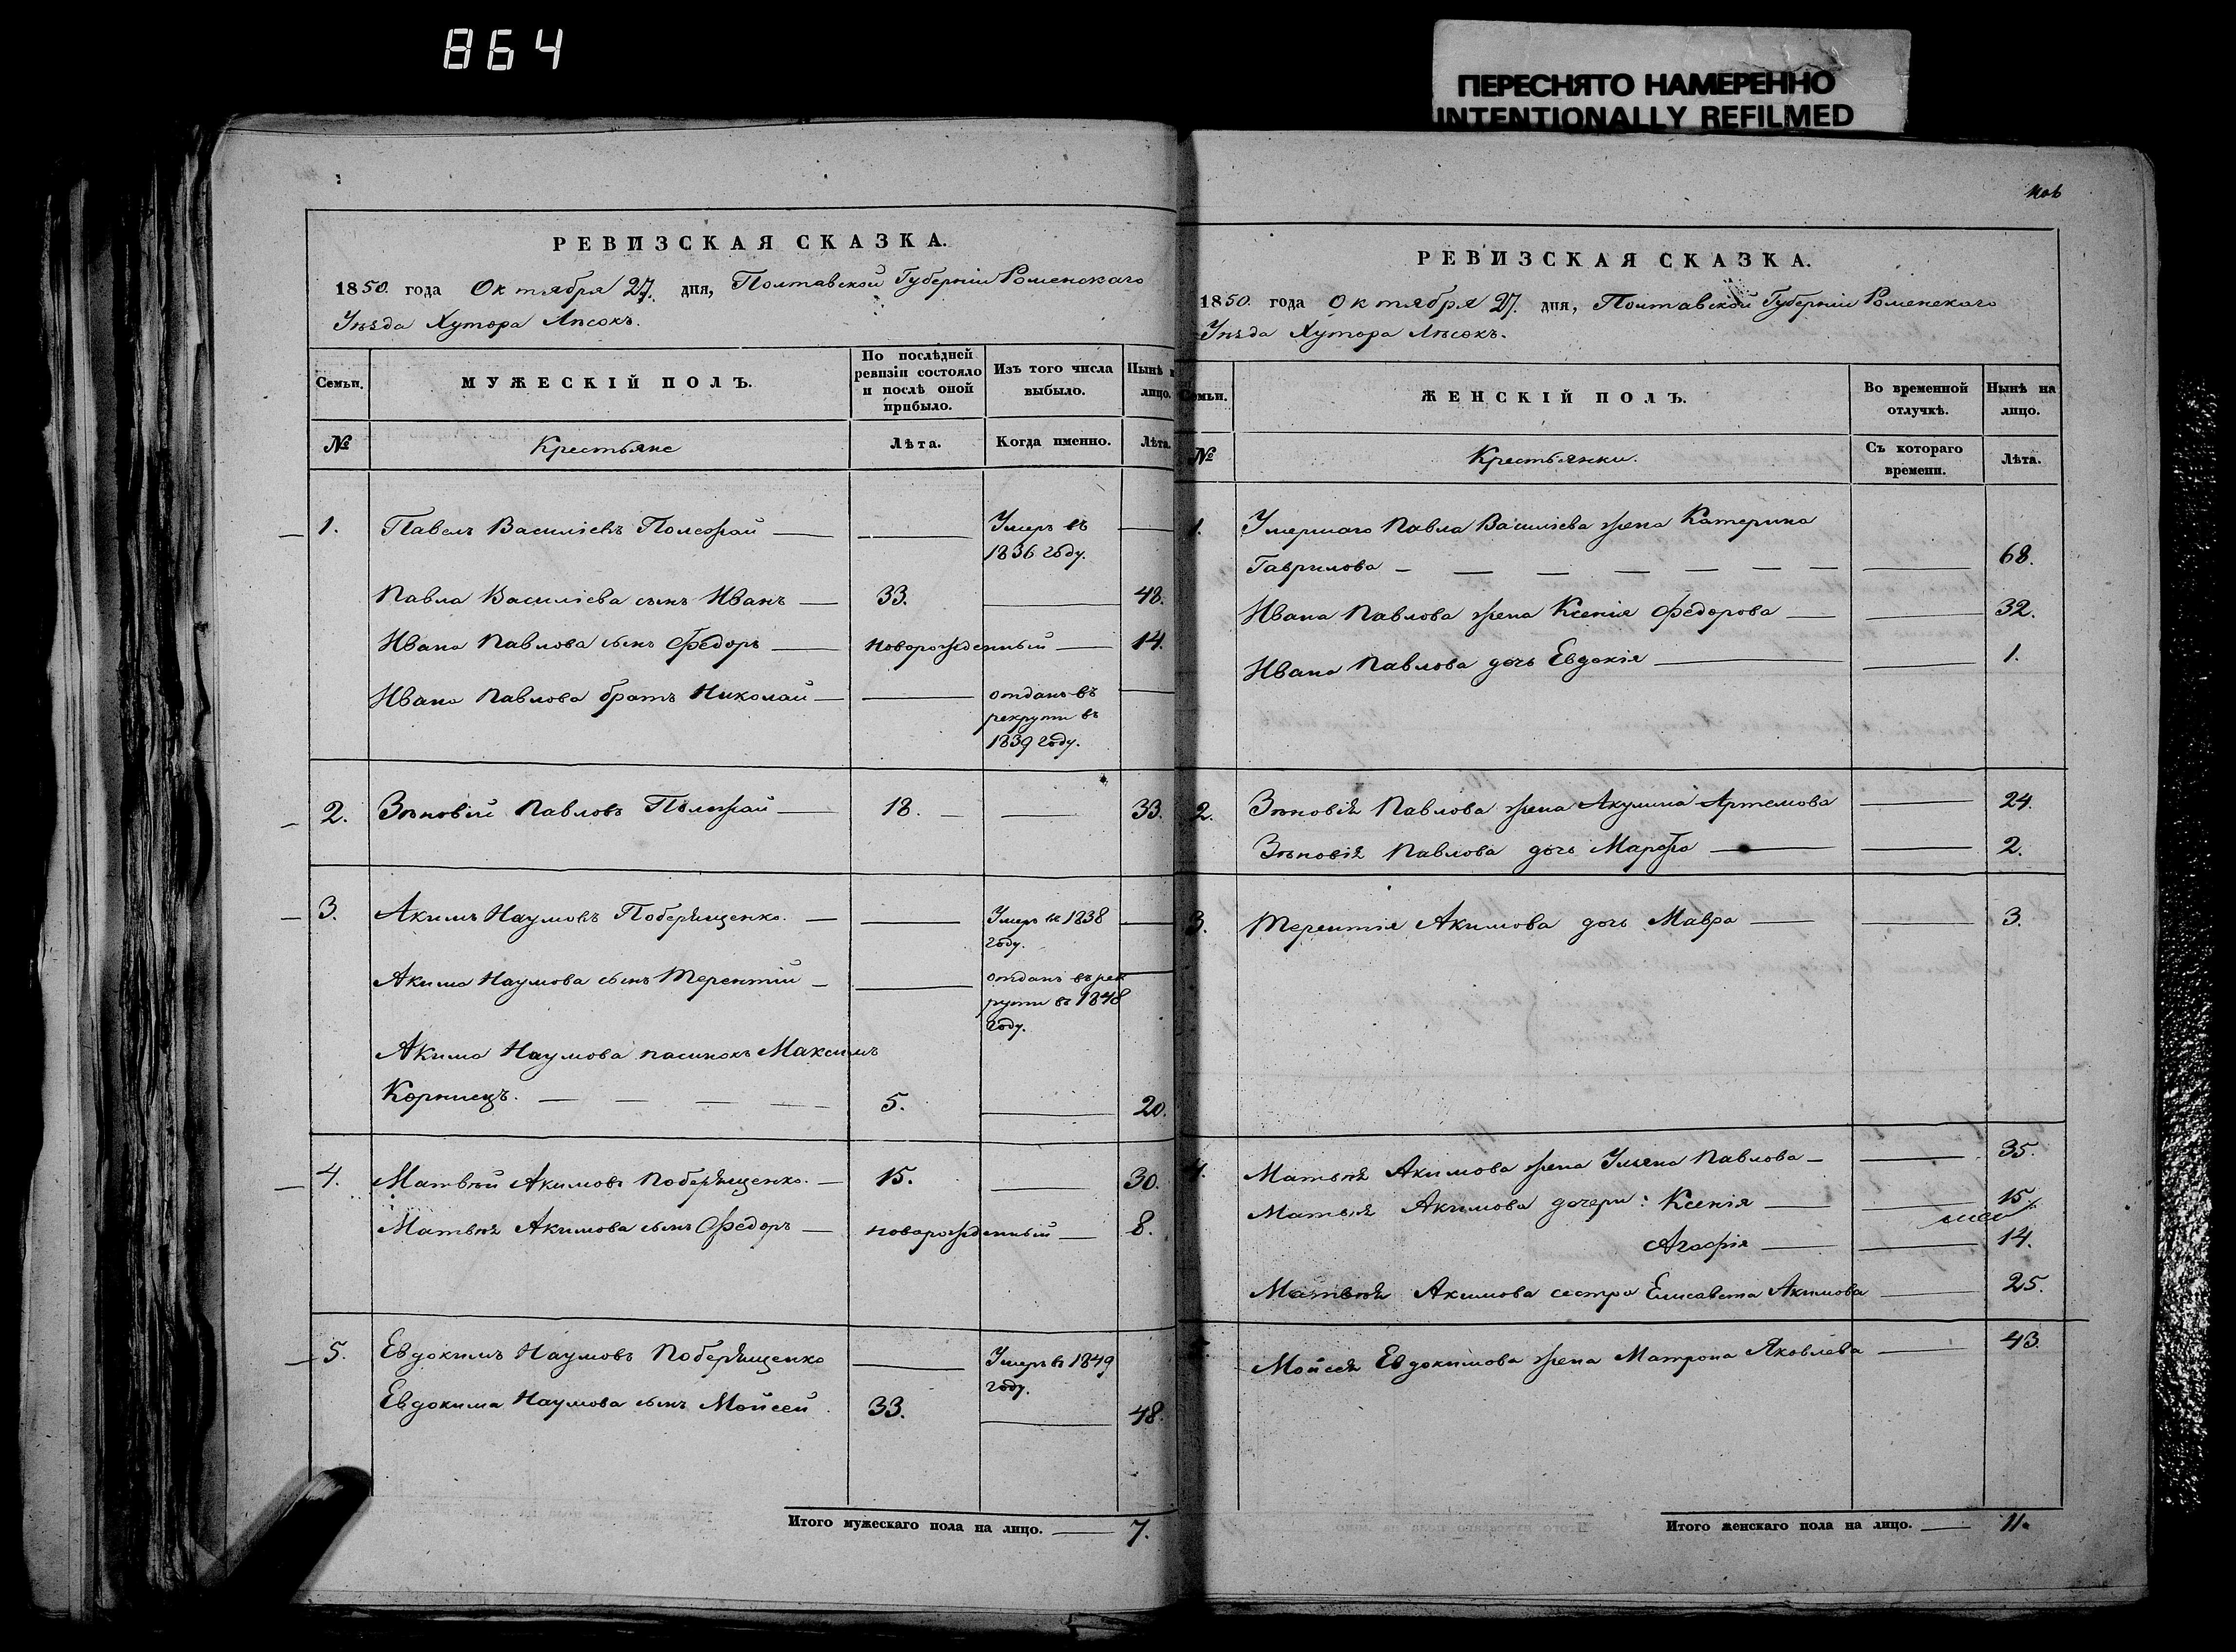 864
ПЕРЕСНЯТО НАМЕРЕННО
INTENTIONALLY REFILMED
РЕВИЗСКАЯ СКАЗКА.
1850. года Октября 27. дня, Полтавской Губерніи Роменскаго
Уѣзда Хутора Лѣсокъ.
Семьи.
МУЖЕСКІЙ ПОЛЪ.
По послѣдней ревизіи состояло и послѣ оной прибыло.
Изъ того числа выбыло.
Нынѣ на лицо.
№
Крестьяне
Лѣта.
Когда именно.
Лѣта.
1. Павелъ Василіевъ Полежай — — Умеръ въ —
1836 году.
Павла Василіева сынъ Иванъ — 33. — 48.
Ивана Павлова сынъ Федоръ — новорожденный — 14.
Ивана Павлова братъ Николай — — отданъ въ —
рекруты въ
1839 году.
2. Зѣновій Павловъ Полежай — 18. — — 33.
3. Акимъ Наумовъ Поберещенко. — — Умеръ въ 1838 —
году.
Акима Наумова сынъ Терентій — — отданъ въ рек —
руты въ 1848
году.
Акима Наумова пасинокъ Максимъ
Корниецъ. — — — — 5. — 20.
4. Матвѣй Акимовъ Поберещенко. — 15. — 30.
Матвѣя Акимова сынъ Федоръ — новорожденный — 8.
5. Евдокимъ Наумовъ Поберещенко — Умеръ въ 1849
году.
Евдокима Наумова сынъ Мойсей. 33. — 48.
Итого мужескаго пола на лицо. — 7.
РЕВИЗСКАЯ СКАЗКА.
1850. года Октября 27. дня, Полтавской Губерніи Роменскаго
Уѣзда Хутора Лѣсокъ.
Семьи.
ЖЕНСКІЙ ПОЛЪ.
Во временной отлучкѣ.
Нынѣ на лицо.
№
Крестьянки.
Съ котораго времени.
Лѣта.
1. Умершаго Павла Василіева жена Катерина
Гаврилова — — — — — — — — 68.
Ивана Павлова жена Ксенія Федорова — — 32.
Ивана Павлова дочь Евдокія — — 1.
2. Зѣновія Павлова жена Акулина Артемова — 24.
Зѣновія Павлова дочь Марфа — — 2.
3. Терентія Акимова дочь Мавра — — 3.
4. Матвѣя Акимова жена Уляна Павлова — — 35.
Матвѣя Акимова дочери: Ксенія — — 15
Агафія — — 14.
Матвѣя Акимова сестра Елисавета Акимова — 25.
Мойсея Евдокимова жена Матрона Яковлева — 43.
Итого женскаго пола на лицо. — 11.